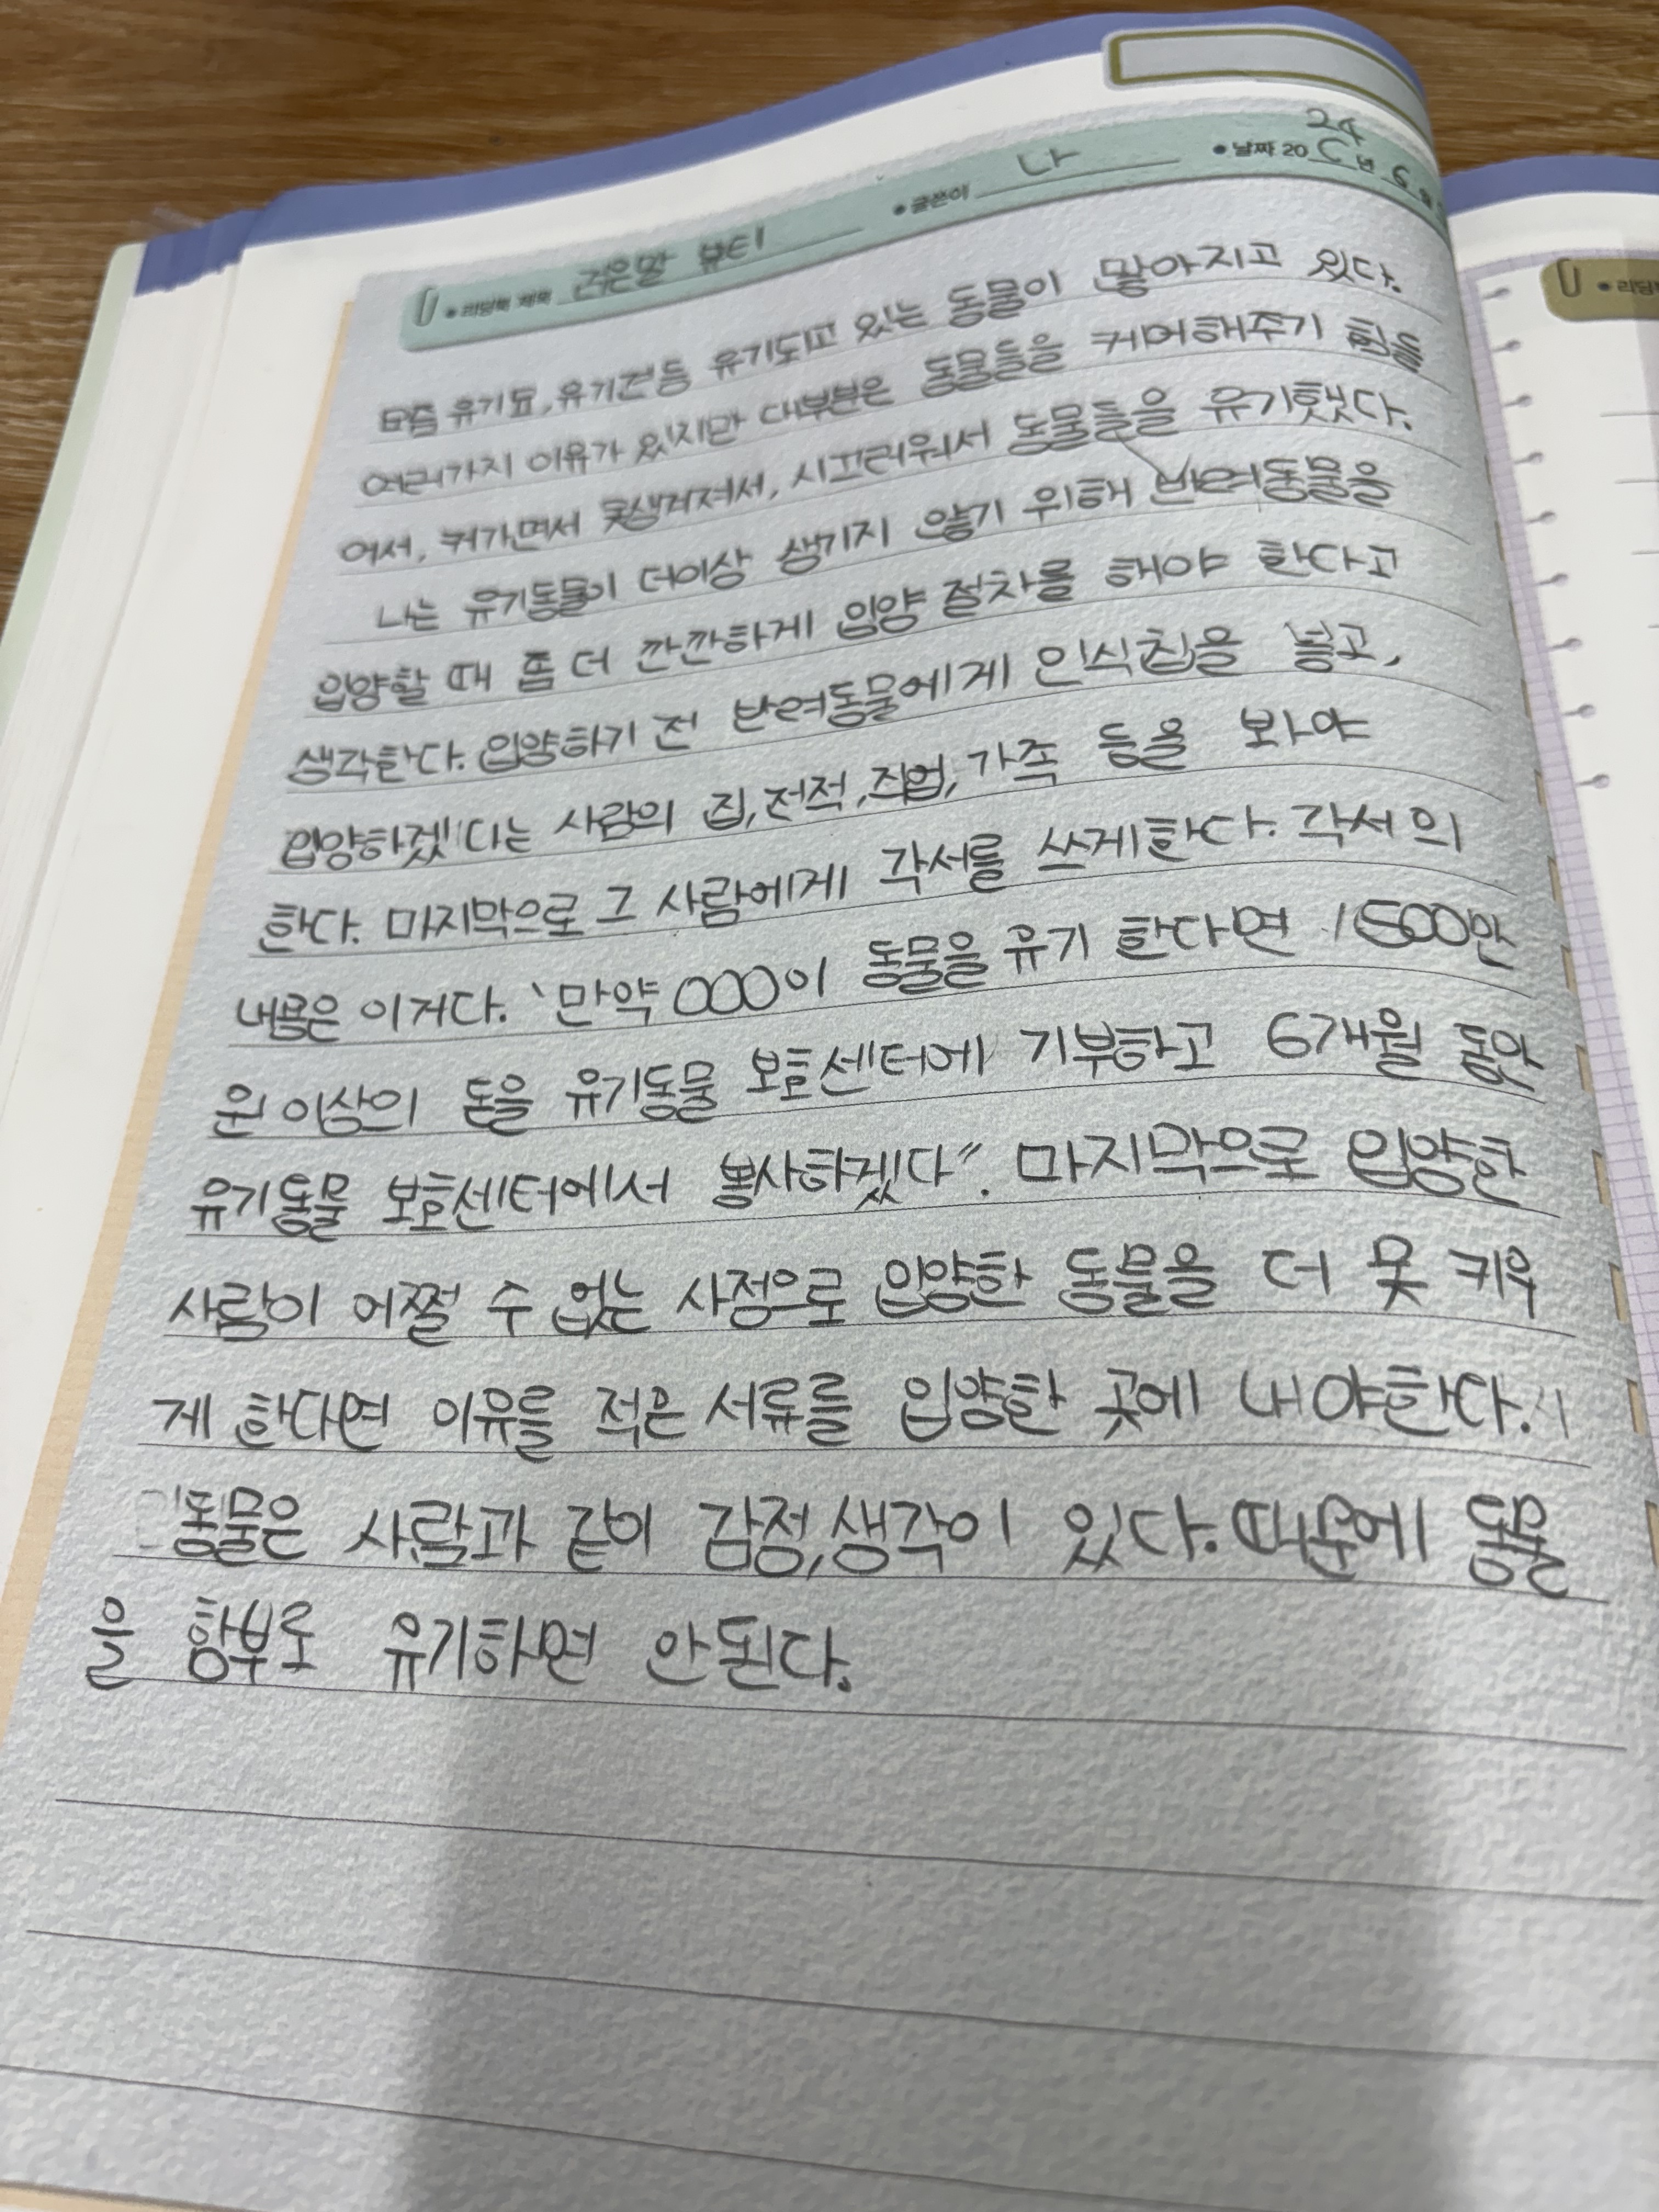 • 리딩북 제목 검은말 뷰티 • 글쓴이 나 • 날짜 20 24 년 6 월
요즘 유기묘, 유기견등 유기되고 있는 동물이 많아지고 있다.
여러가지 이유가 있지만 대부분은 동물들을 케어해주기 힘들
어서, 커가면서 못생겨져서, 시끄러워서 동물들을 유기했다.
나는 유기동물이 더이상 생기지 않기 위해 반려동물을
입양할 때 좀 더 깐깐하게 입양 절차를 해야 한다고
생각한다. 입양하기 전 반려동물에게 인식칩을 넣고,
입양하겠다는 사람의 집, 전적, 직업, 가족 등을 봐야
한다. 마지막으로 그 사람에게 각서를 쓰게한다. 각서의
내용은 이거다. ‵만약 OOO이 동물을 유기 한다면 1500만
원 이상의 돈을 유기동물 보호센터에 기부하고 6개월 동안
유기동물 보호센터에서 봉사하겠다〃. 마지막으로 입양한
사람이 어쩔 수 없는 사정으로 입양한 동물을 더 못 키우
게 한다면 이유를 적은 서류를 입양한 곳에 내야한다.
동물은 사람과 같이 감정, 생각이 있다. 때문에 동물
을 함부로 유기하면 안된다.
• 리딩